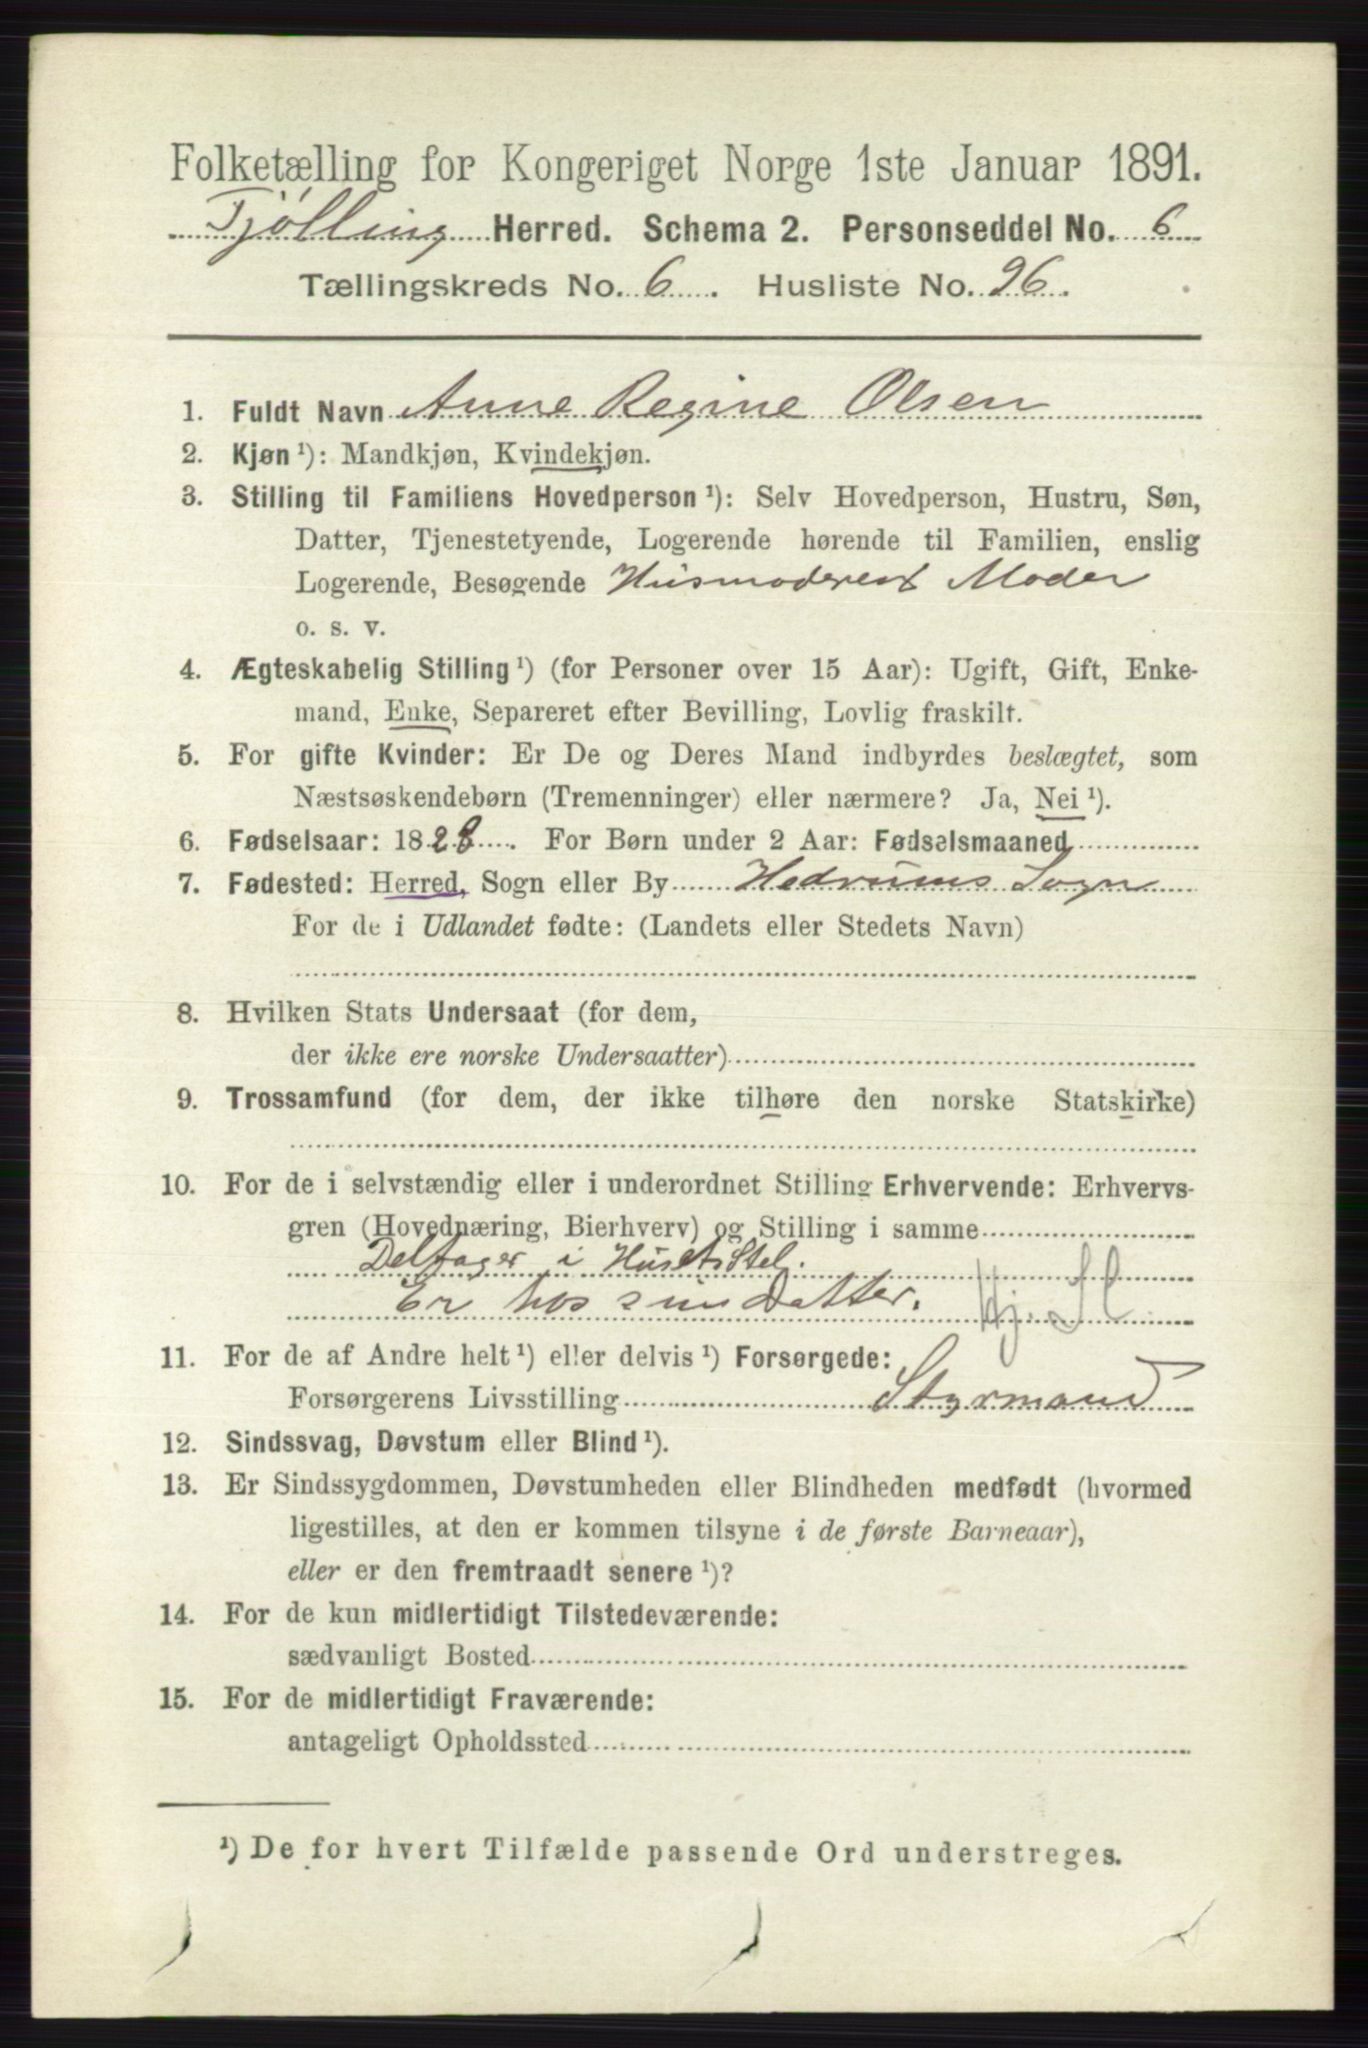 Folketælling for Kongeriget Norge 1ste Januar 1891.
Tjølling Herred. Schema 2. Personseddel No. 6
Tællingskreds No. 6. Husliste No. 96.
1. Fuldt Navn Anne Regine Olsen
2. Kjøn ¹): Mandkjøn, Kvindekjøn.
3. Stilling til Familiens Hovedperson ¹): Selv Hovedperson, Hustru, Søn,
Datter, Tjenestetyende, Logerende hørende til Familien, enslig
Logerende, Besøgende Husmoderens Moder
o. s. v.
4. Ægteskabelig Stilling ¹) (for Personer over 15 Aar): Ugift, Gift, Enke-
mand, Enke, Separeret efter Bevilling, Lovlig fraskilt.
5. For gifte Kvinder: Er De og Deres Mand indbyrdes beslægtet, som
Næstsøskendebørn (Tremenninger) eller nærmere? Ja, Nei ¹).
6. Fødselsaar: 1828. For Børn under 2 Aar: Fødselsmaaned
7. Fødested: Herred, Sogn eller By Hedrums Sogn
For de i Udlandet fødte: (Landets eller Stedets Navn)
8. Hvilken Stats Undersaat (for dem,
der ikke ere norske Undersaatter)
9. Trossamfund (for dem, der ikke tilhøre den norske Statskirke)
10. For de i selvstændig eller i underordnet Stilling Erhvervende: Erhvervs-
gren (Hovednæring, Bierhverv) og Stilling i samme
Deltager i Husets Stel.
Er hos sin Datter. Hj. Sl.
11. For de af Andre helt ¹) eller delvis ¹) Forsørgede:
Forsørgerens Livsstilling Styrmand
12. Sindssvag, Døvstum eller Blind ¹).
13. Er Sindssygdommen, Døvstumheden eller Blindheden medfødt (hvormed
ligestilles, at den er kommen tilsyne i de første Barneaar),
eller er den fremtraadt senere ¹)?
14. For de kun midlertidigt Tilstedeværende:
sædvanligt Bosted
15. For de midlertidigt Fraværende:
antageligt Opholdssted
¹) De for hvert Tilfælde passende Ord understreges.